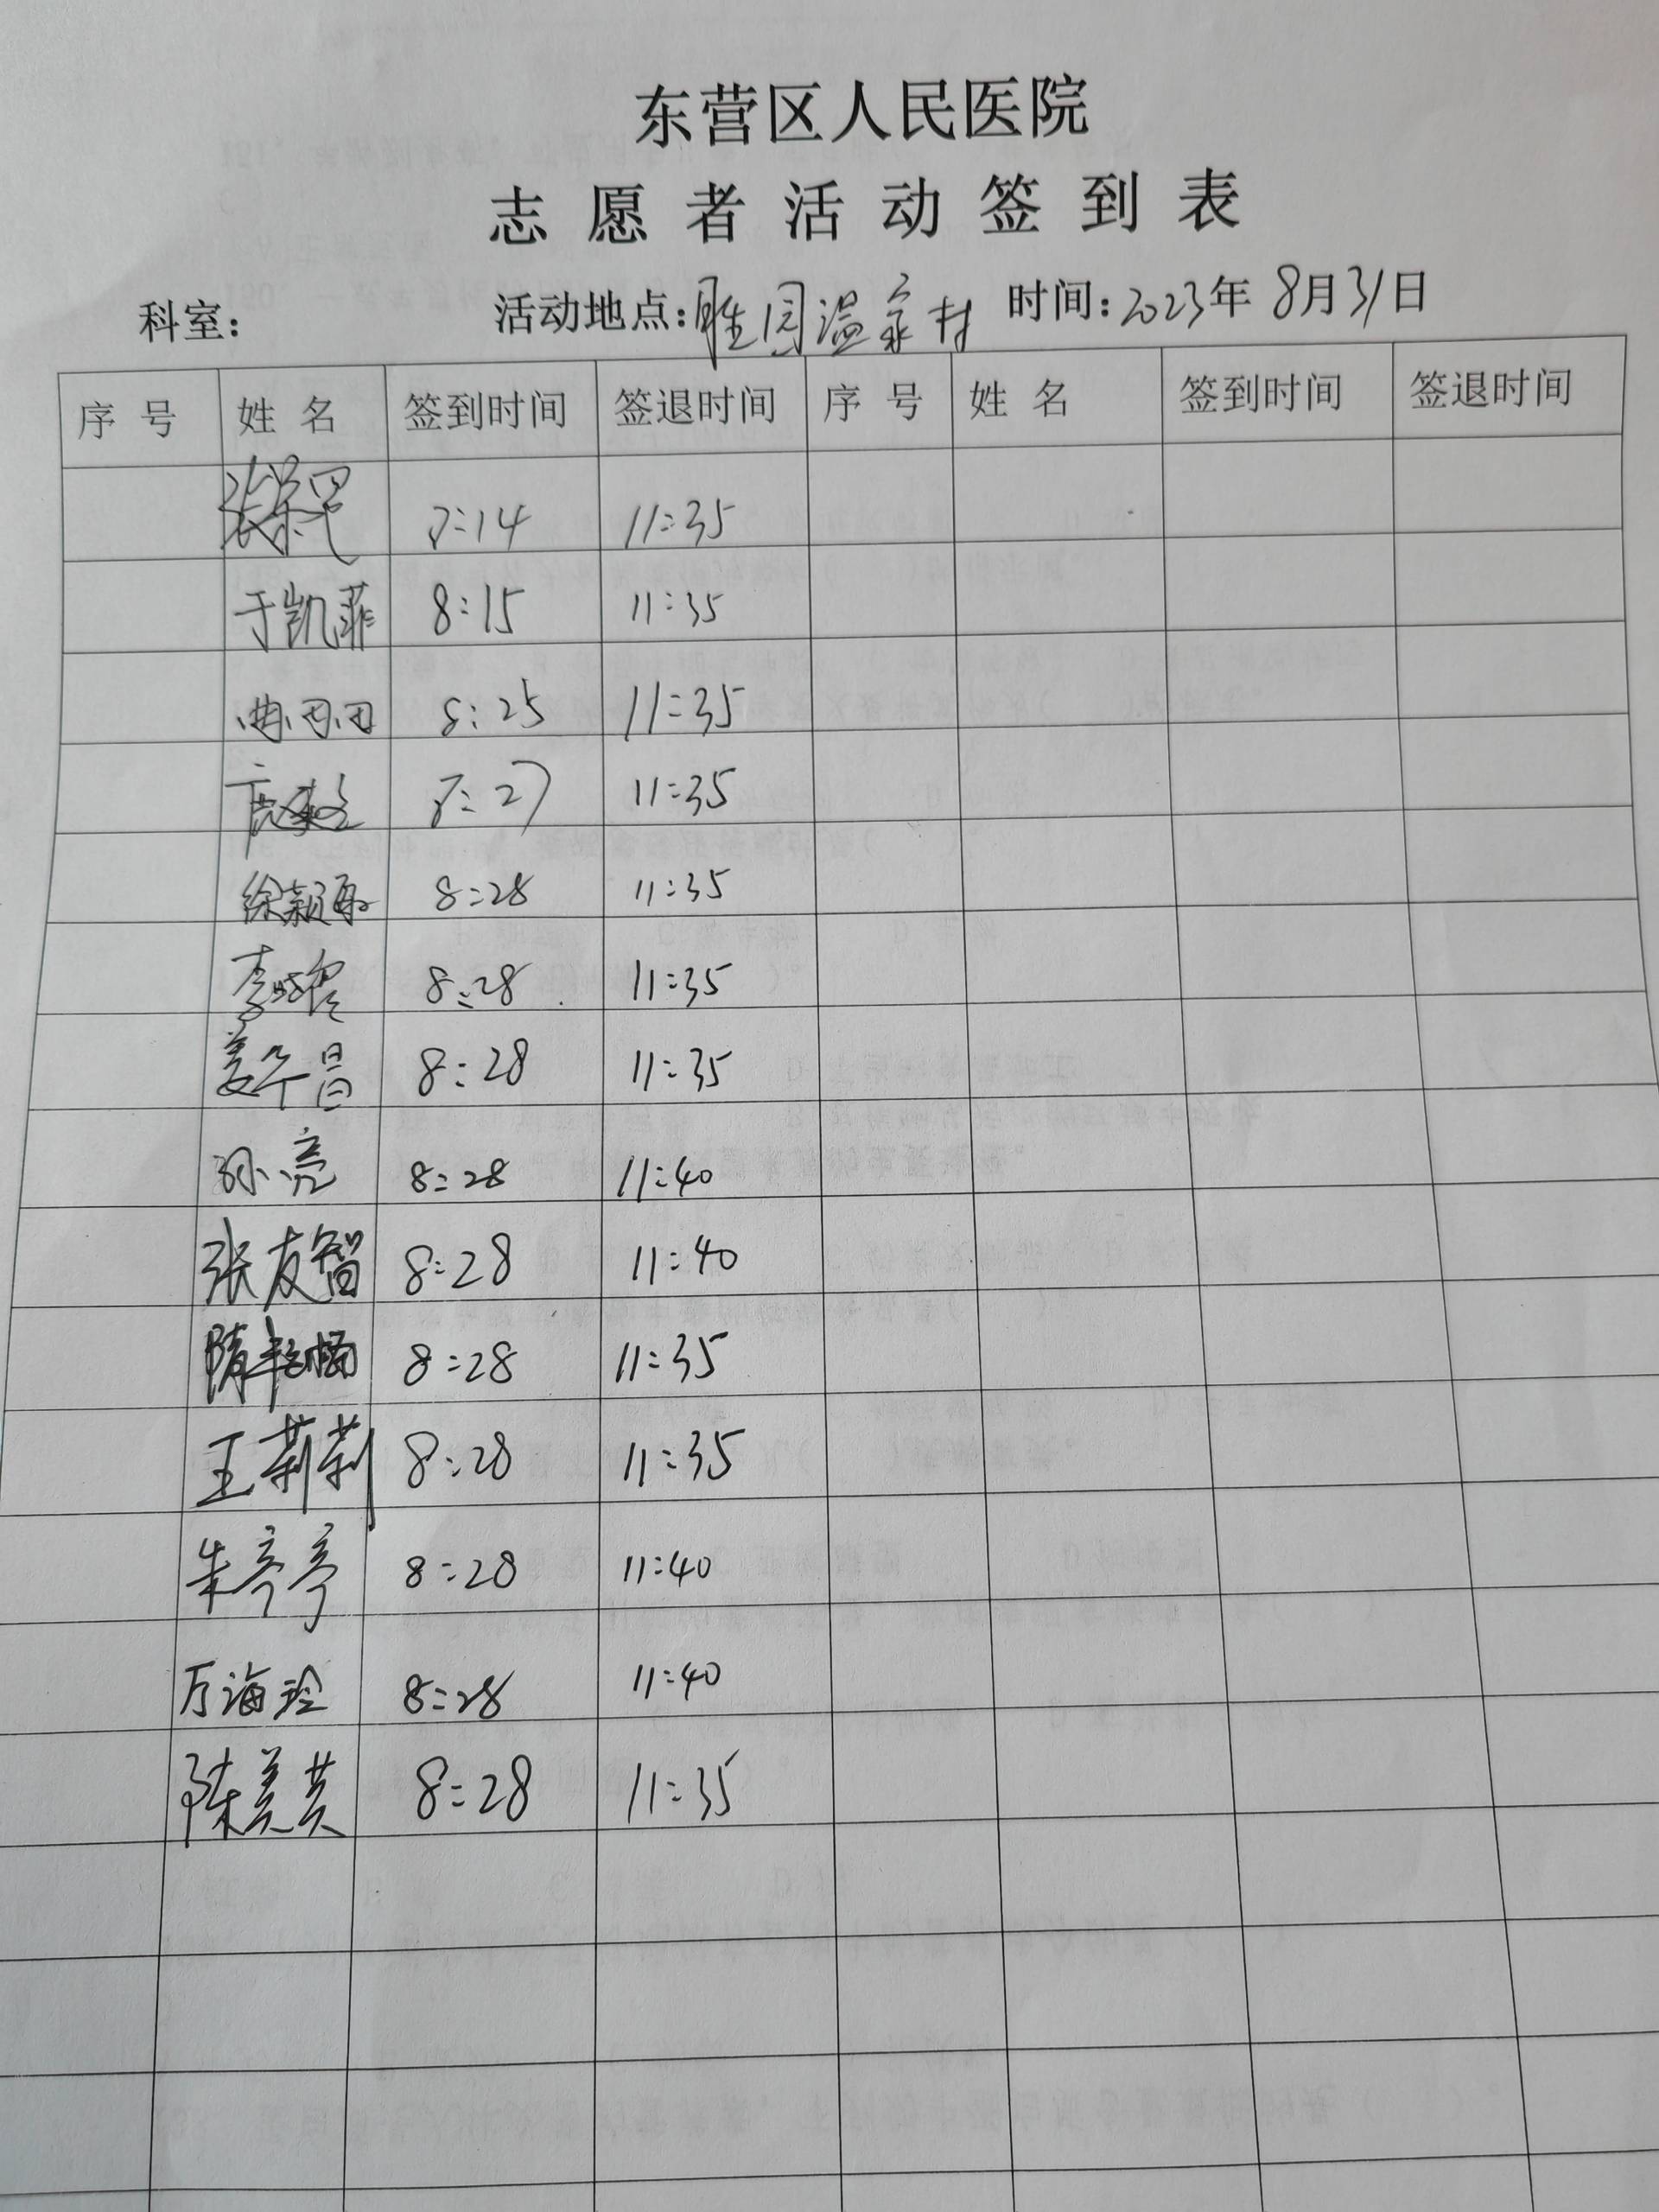 东营区人民医院
志愿者活动签到表
科室： 活动地点：胜园温家村 时间：2023年8月31日
序号 姓名 签到时间 签退时间 序号 姓名 签到时间 签退时间
8:14 11:35
于凯菲 8:15 11:35
曲丹丹 8:25 11:35
8:27 11:35
徐颖 8:28 11:35
李晓 8:28 11:35
姜 昌 8:28 11:35
孙亮 8:28 11:40
张友智 8:28 11:40
隋艳梅 8:28 11:35
王莉莉 8:28 11:35
朱亭亭 8:28 11:40
万海玲 8:28 11:40
陈美英 8:28 11:35